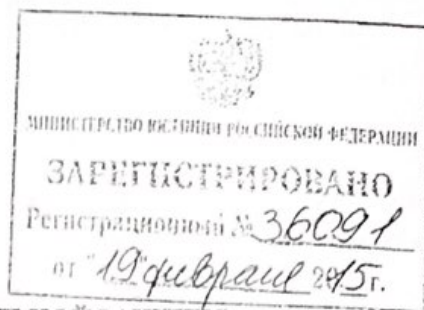 МИНИСТЕРСТВО ЮСТИЦИИ РОССИЙСКОЙ ФЕДЕРАЦИИ
ЗАРЕГИСТРИРОВАНО
Регистрационный № 36091
от "19" февраля 2015г.